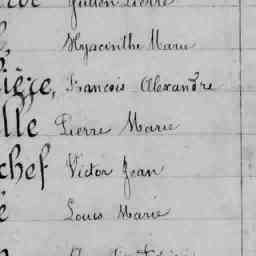 Julien Pierre
Hyacinthe Marie
ière, François Alexandre
lle Pierre Marie
chef Victor Jean
é Louis Marie